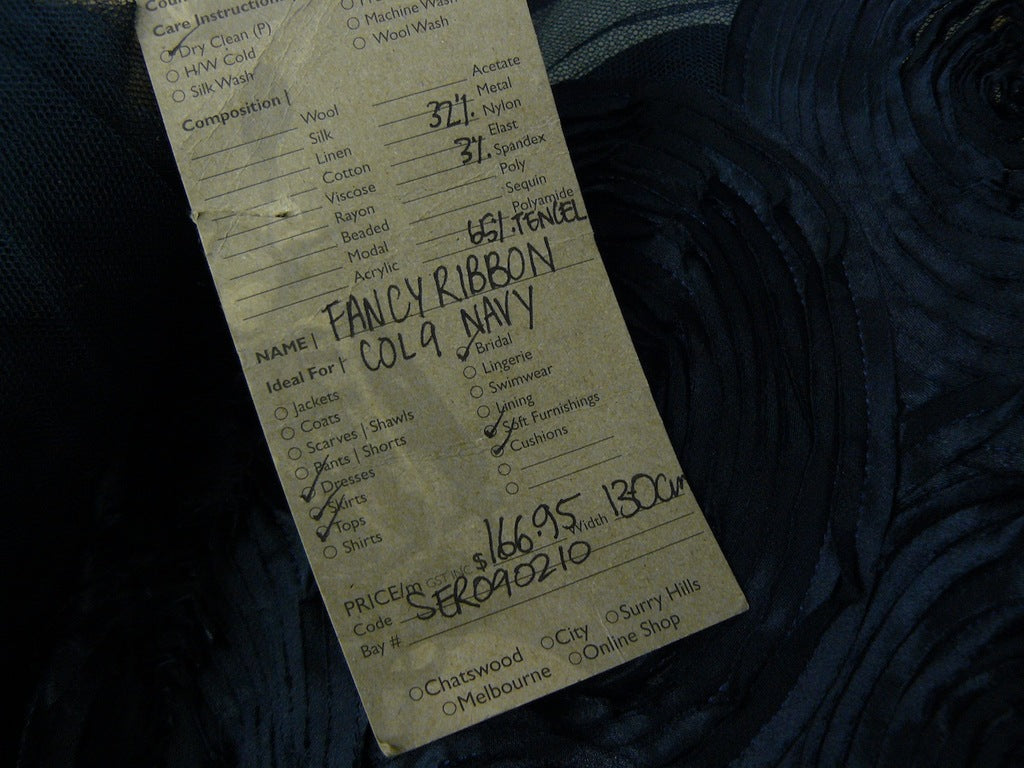 Care Instructions
Dry Clean (P)
H/W Cold
Silk Wash
Machine Wash
Wool Wash
Composition |
Wool
Silk
Linen
Cotton
Viscose
Rayon
Beaded
Modal
Acrylic
Acetate
Metal
32% Nylon
Elast
3% Spandex
Poly
Sequin
Polyamide
65% TENCEL
NAME | FANCY RIBBON
Ideal For | COL 9 NAVY
Jackets
Coats
Scarves | Shawls
Pants | Shorts
Dresses
Skirts
Tops
Shirts
Bridal
Lingerie
Swimwear
Lining
Soft Furnishings
Cushions
PRICE/m GST INC $166.95 Width 130cm
Code SER090210
Bay #
Chatswood City Surry Hills
Melbourne Online Shop